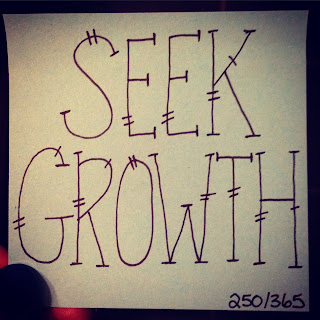 SEEK
GROWTH
250/365